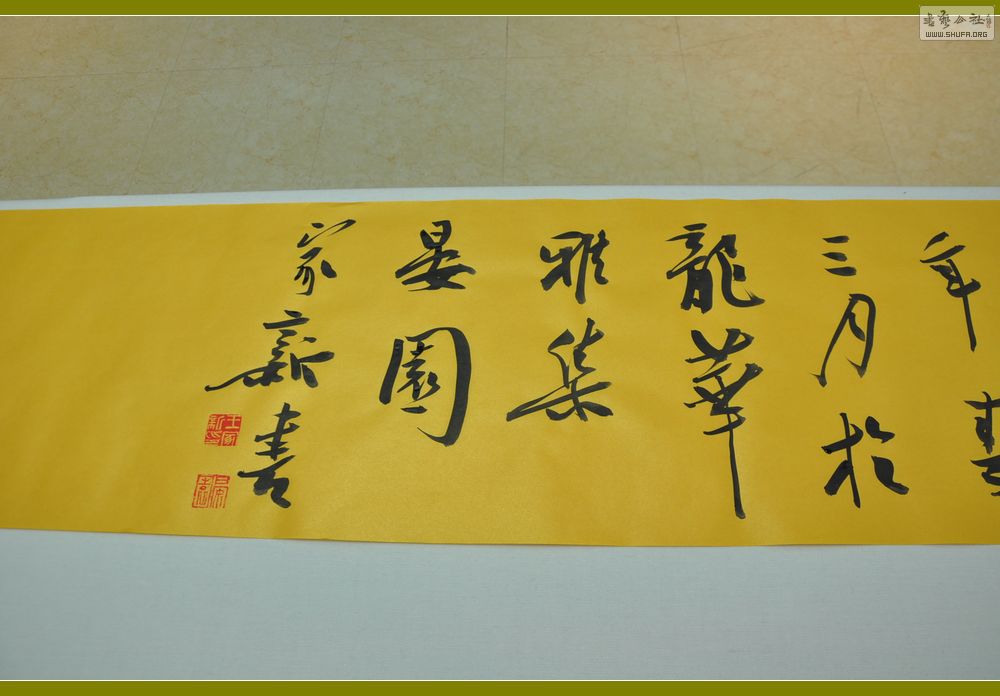 年春
三月於
龍華
雅集
晏園
家新書
王家新印
書藝公社
WWW.SHUFA.ORG